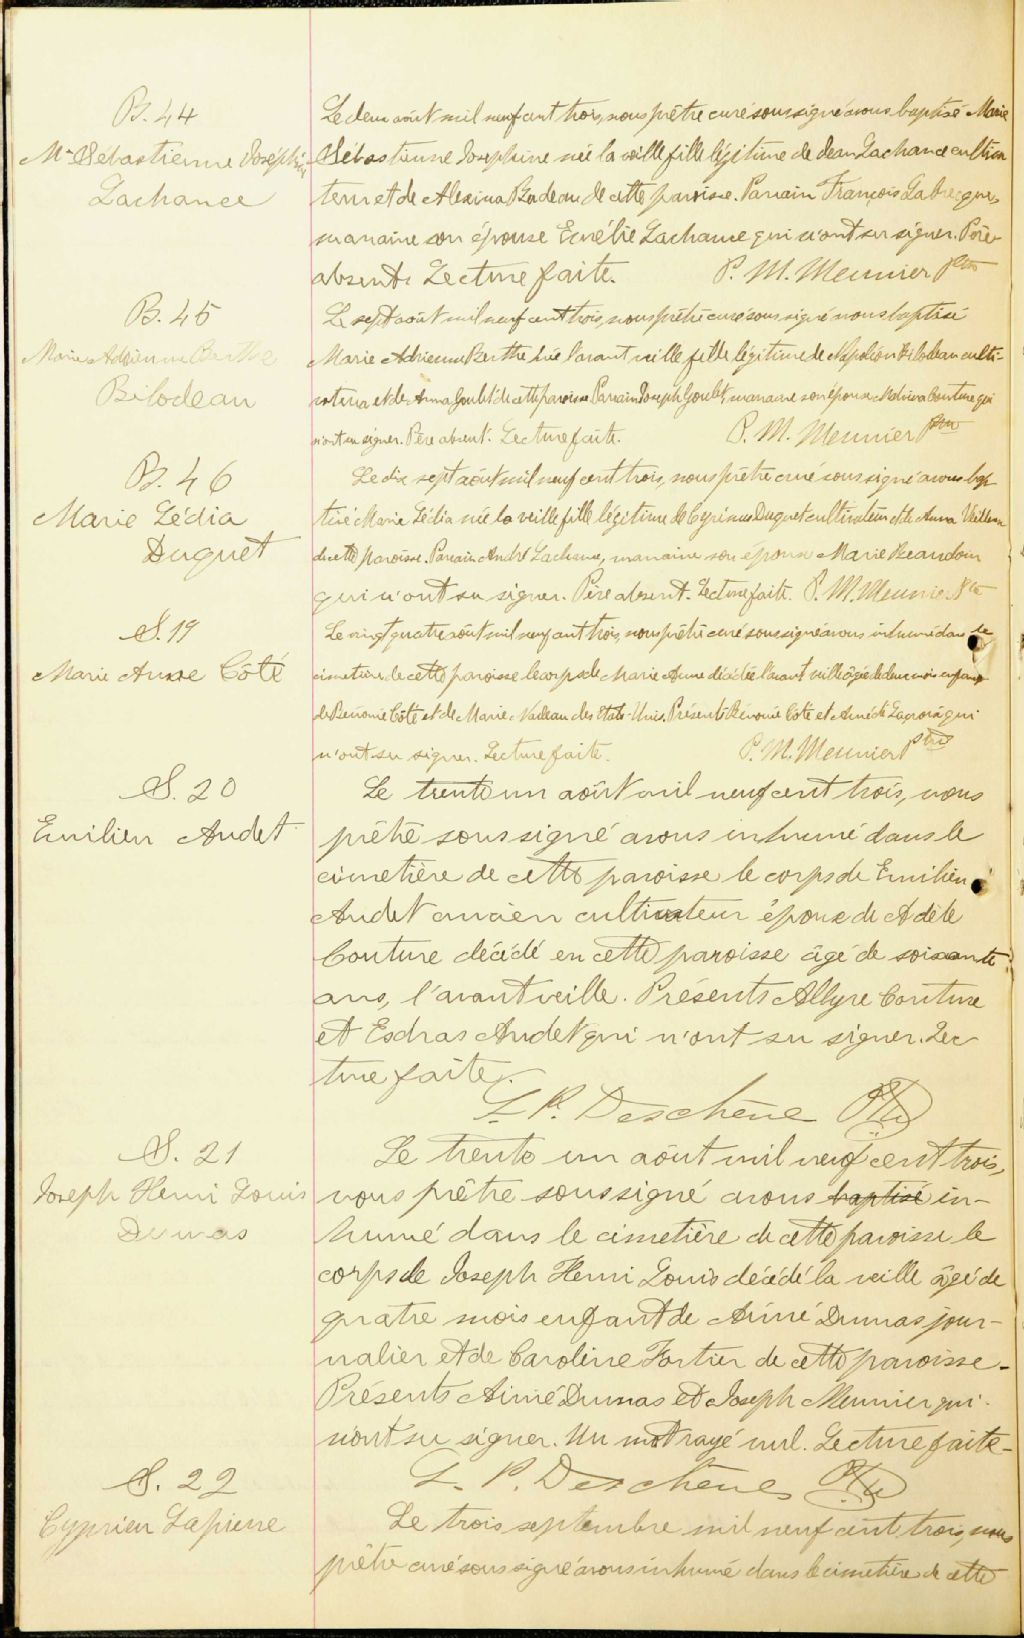 B. 44
Mie Sébastienne Joséphine
Lachance
Le deux août mil neuf cent trois, nous prêtre curé soussigné avons baptisé Marie
Sébastienne Josephine née la veille fille légitime de Jean Lachance cultiva
teur et de Alexina Badeau de cette paroisse. Parrain François Labrecque,
marraine son épouse Emélie Lachance qui n'ont su signer. Père
absent. Lecture faite. P. M. Meunier Ptre
B. 45
Marie Adrienne Berthe
Bilodeau
Le sept août mil neuf cent trois, nous prêtre curé soussigné avons baptisé
Marie Adrienne Berthe née l'avant veille fille légitime de Napoléon Bilodeau culti-
vateur et de Anna Goulet de cette paroisse Parrain Joseph Goulet, marraine son épouse Malvina Couture qui
n'ont su signer. Père absent. Lecture faite. P. M. Meunier Ptre
B. 46
Marie Lédia
Duquet
Le dix sept août mil neuf cent trois, nous prêtre curé soussigné avons bap
tisé Marie Lédia née la veille fille légitime de Cyprien Duquet cultivateur et de Anna Veilleux
de cette paroisse. Parrain André Lachance, marraine son épouse Marie Beaudoin
qui n'ont su signer. Père absent. Lecture faite. P. M. Meunier Ptre
S. 19
Marie Anne Côté
Le vingt quatre août mil neuf cent trois, nous prêtre curé soussigné avons inhumé dans le
cimetière de cette paroisse le corps de Marie Anne décédée l'avant veille âgée de deux mois enfant
de Bénonie Côté et de Marie Nadeau des Etats-Unis. Présents Bénonie Côté et Amédé Lacroix qui
n'ont su signer. Lecture faite. P. M. Meunier Ptre
S. 20
Emilien Audet
Le trente un août mil neuf cent trois, nous
prêtre soussigné avons inhumé dans le
cimetière de cette paroisse le corps de Emilien
Audet ancien cultivateur époux de Adèle
Couture décédé en cette paroisse âgé de soixante
ans, l'avant veille. Présents Allyre Couture
et Esdras Audet qui n'ont su signer. Lec
ture faite.
L. P. Deschêne Ptre
S. 21
Joseph Henri Louis
Dumas
Le trente un août mil neuf cent trois,
nous prêtre soussigné avons baptisé in-
humé dans le cimetière de cette paroisse le
corps de Joseph Henri Louis décédé la veille âgé de
quatre mois enfant de Aimé Dumas jour-
nalier et de Caroline Fortier de cette paroisse.
Présents Aimé Dumas et Joseph Meunier qui
n'ont su signer. Un mot rayé nul. Lecture faite.
L. P. Deschênes Ptre
S. 22
Cyprien Lapierre
Le trois septembre mil neuf cent trois, nous
prêtre curé soussigné avons inhumé dans le cimetière de cette